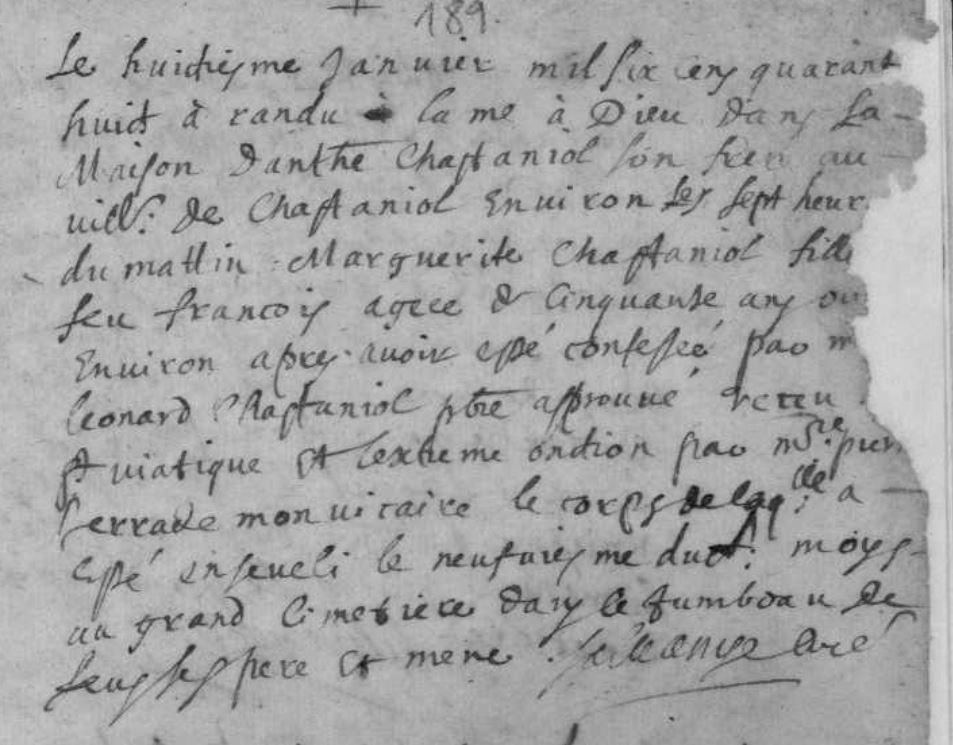 189.
Le huictiesme Janvier mil six cens quarant
huict a randu à lame à Dieu dans la
Maison d'anthe Chastaniol son frere au
vill: de Chastaniol Environ les sept heur
du mattin Marguerite Chastaniol fill
feu francois agee de Cinquante ans ou
Environ apres avoir esté confessée par m
Leonard Chastaniol pbre approuvé receu
st viatique et lextreme onction par mre
Serrade mon vicaire le corps de laqlle a
esté enseveli le neufviesme dud: moys
au grand Cimetiere dans le tumbeau de
feus ses pere et mere curé